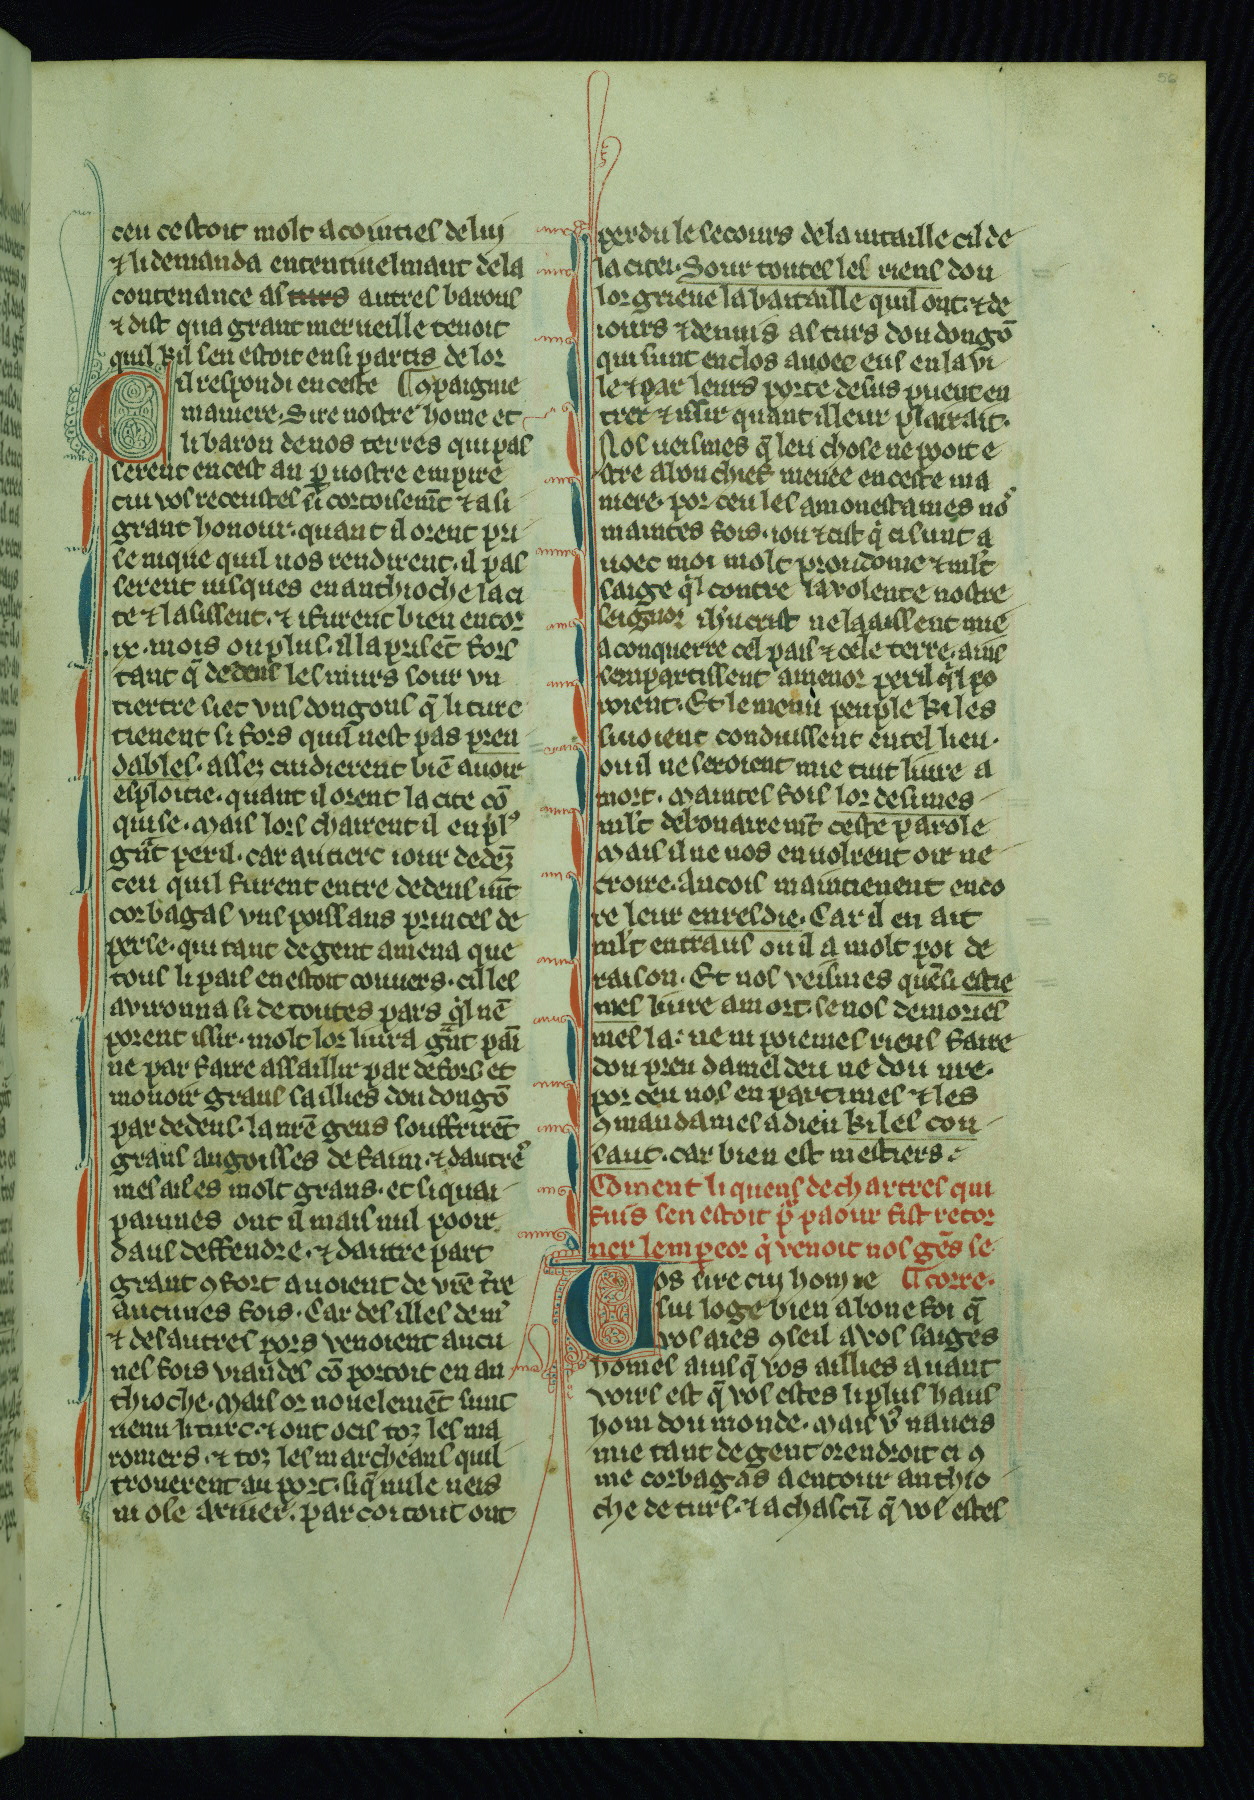 56
ceu cestoit molt acointies de luj
⁊ li demanda ententiuelmant de la
contenance as turs autres barons
⁊ dist qua grant merueille tenoit
quil kil sen estoit ensi partis de lor
Cil respondi en ceste Cōpaignie
maniere. Sire nostre home et
li baron de nos terres qui pas
serent en cest an p̱ uostre empire
cui vos receustes si cortoisemt̄ ⁊ a si
grant honour. quant il orent pri
se nique quil uos rendirent. il pas
serent iusques en anthioche la ci
te ⁊ lasissent. ⁊ i furent bien entor
.ix. mois ou plus. il la prisēt fors
tant q̄ dedens les murs sour vn
tiertre siet vns dongons q̄ li turc
tienent si fors quil nest pas pren
dables. assez cuidierent biē auoir
esploitie. quant il orent la cite cō
quise. Mais lors chairent il en plꝰ
gͣnt peril. car au tierc iour dedēz
ceu quil furent entre dedens uīt
corbagas vns poissans princes de
perse. qui tant de gent amena que
tous li pais en estoit couuers. cil les
avironna si de toutes pars qͥl nē
porent issir. molt lor liura gͣnt pai
ne par faire assaillir par defors et
mouoir grans saillies dou dongō
par dedens. la nr̄e gens souffrirēt
grans angoisses de faim. ⁊ dautrēs
mesaises molt grans. et si quai
painnes ont il mais nul pooir
daus deffendre. ⁊ dautre part
grant ꝯfort auoient de vr̄e tr̄re
aucunes fois. Car des illes de mͬ
⁊ des autres pors venoient aucu
nes fois viandes cō portoit en an
thioche. Mais or nouelemēt sunt
uenu li turc. ⁊ ont ocis toz les ma
roniers. ⁊ toz les marcheans quil
trouerent au port. si q̄ nule neis
ni ose ariuer. par coi tout ont
perdu le secours de la uitaille cil de
la citei. Sour toutes les riens dou
lor grieue la bataille quil ont. ⁊ de
iours ⁊ de nuis as turs dou dongō
qui sunt enclos auoec eus en la vi
le ⁊ par leurs porte desus puent en
trer ⁊ issir quant il leur plairait.
Nos ueismes q̄ leu chose ne pooit e
stre a bon chief menee en ceste ma
niere. por ceu les amonestames nos
maintes fois. iou ⁊ cist qͥ ci sunt a
uoec moi molt proudome ⁊ mlt̄
saige qͥl contre la volente nostre
seignor ih'ucrist ne laaissent mie
a conquerre cel pais ⁊ cele terre. ains
sempartissent a menor peril qͥl po
roient. Et le menu peuple ki les
suioient conduissent en tel lieu.
ou il ne seroient mie tuit liure a
mort. Maintes fois lor desimes
mlt̄ debonairemt̄ ceste parole
Mais il ne nos en uolrent oir ne
croire. Ancois maintienent enco
re leur enresdie. Car il en ait
mlt̄ entraus ou il a molt poi de
raison. Et nos veismes quēsi estie
mes liure a mort. se nos demories
mes la: ne ni poiemes riens faire
dou preu damesdeu ne dou nre.
por ceu nos en partimes ⁊ les
ꝯmandames a dieu ki les con
saut. car bien est mestiers.
Coment li quens de chartres qui
fuis sen estoit p̄ paour fist retor
ner lempeor qͥ venoit nos gēs se
Vos sire cuj home ¶ corre.
sui loge bien a bone foi q̄
vos aies ꝯseil a vos saiges
homes ains q̄ vos aillies auant
voirs est q̄ vos estes li plus haus
hom dou monde. Mais vͦ naueis
mie tant de gent orendroit ci ꝯ
me corbagas a entour anthio
che de turs. ⁊ a chascū q̄ vos estes